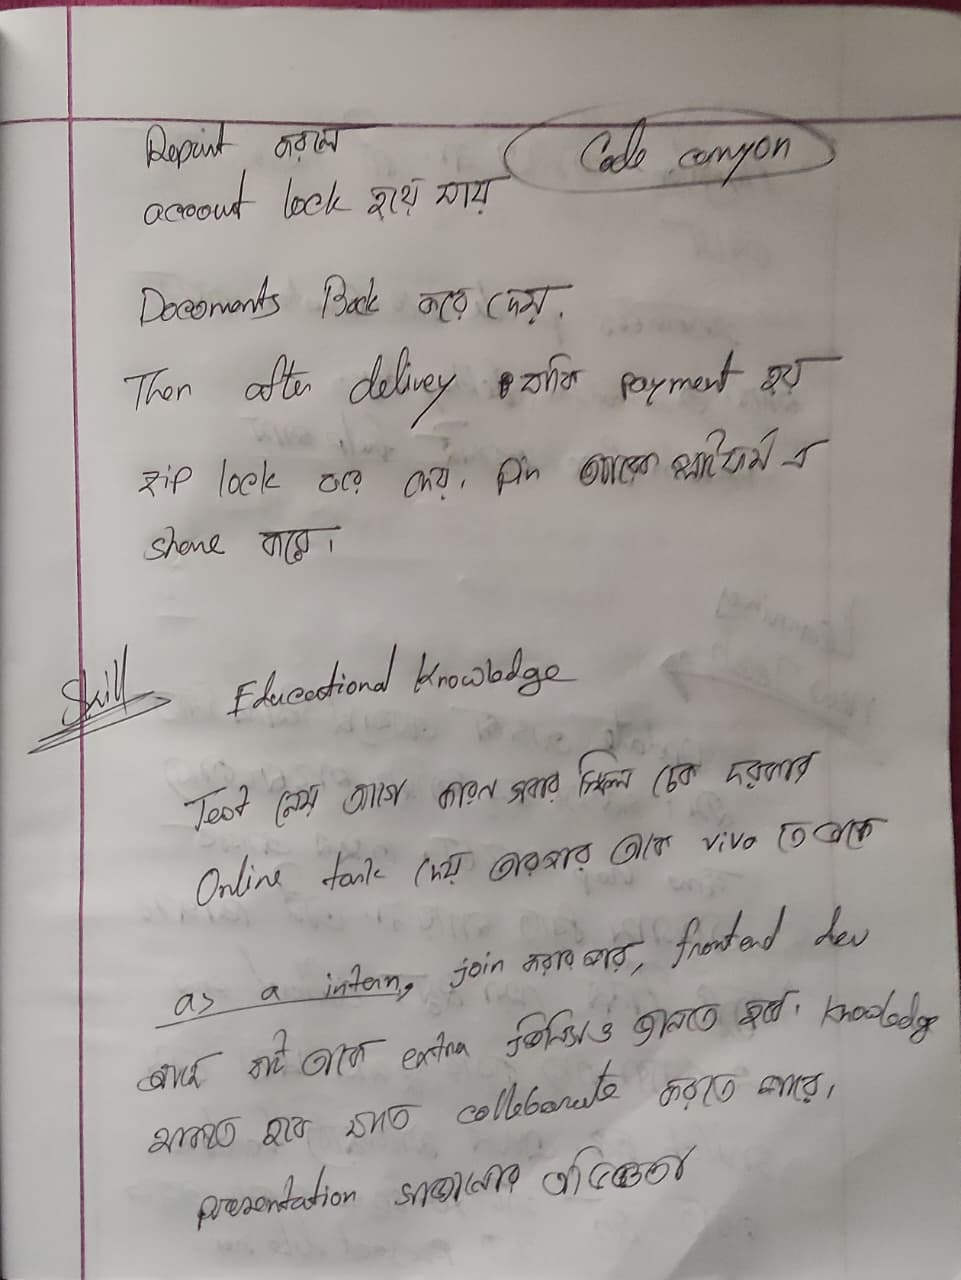 Repint করলে
Code canyon
account lock হয়ে যায়
Docoments Back করে দেয়.
Then after delivey বাকি payment হয়
zip lock করে দেয়, Pin
share করে।
Skill
Educational Knowledge
Test নেয় আগে কারন সবার স্কিল চেক দরকার
Online task দেয় তারপর তাকে vivo তে ডাকে
as a intern, join করার পর, frontend dev
তাকে extra জিনিসও জানতে হবে. Knowledge
থাকতে হবে যাতে colleborate করতে পারে,
presentation সাজানোর